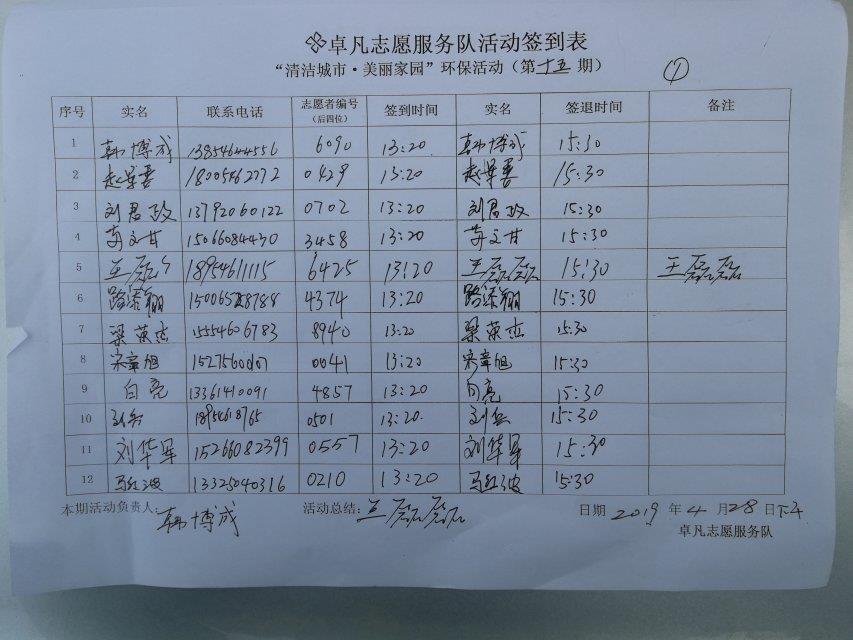 卓凡志愿服务队活动签到表
“清洁城市·美丽家园”环保活动（第十五期）
①
序号 实名 联系电话 志愿者编号（后四位） 签到时间 实名 签退时间 备注
1 韩博成 13854644556 6090 13:20 韩博成 15:30
2 18005462772 0429 13:20 15:30
3 刘君政 13792060122 0702 13:20 刘君政 15:30
4 苏文甘 15066084430 3458 13:20 苏文甘 15:30
5 王磊磊 18954611115 6425 13:20 王磊磊 15:30 王磊磊
6 4374 13:20 15:30
7 梁荣杰 15554606783 8940 13:20 梁荣杰 15:30
8 宋章旭 0041 13:20 宋章旭 15:30
9 白亮 13361410091 4857 13:20 白亮 15:30
10 18954618765 0501 13:20. 15:30
11 刘华军 15266082399 0557 13:20 刘华军 15:30
12 马红波 13325040316 0210 13:20 马红波 15:30
本期活动负责人: 韩博成 活动总结: 王磊磊 日期 2019 年 4 月 28 日下午
卓凡志愿服务队